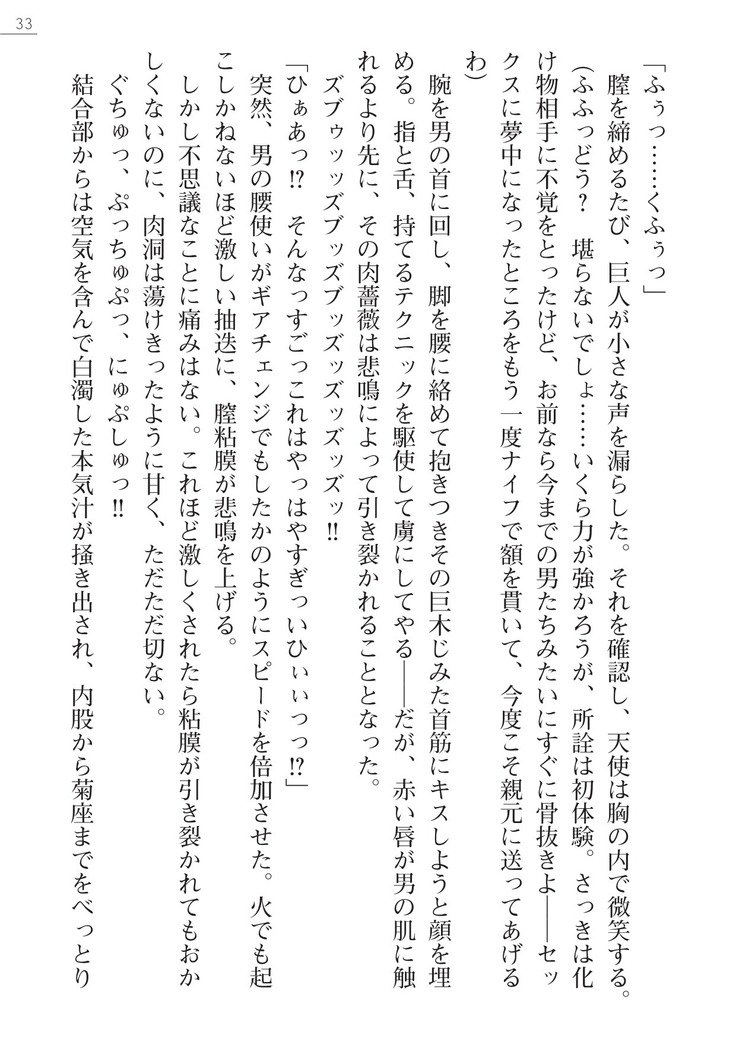 33
「ふぅっ……くふぅっ」
膣を締めるたび、巨人が小さな声を漏らした。それを確認し、天使は胸の内で微笑する。
(ふふっどう？　堪らないでしょ……いくら力が強かろうが、所詮は初体験。さっきは化
け物相手に不覚をとったけど、お前なら今までの男たちみたいにすぐに骨抜きよ――セッ
クスに夢中になったところをもう一度ナイフで額を貫いて、今度こそ親元に送ってあげる
わ)
腕を男の首に回し、脚を腰に絡めて抱きつきその巨木じみた首筋にキスしようと顔を埋
める。指と舌、持てるテクニックを駆使して虜にしてやる――だが、赤い唇が男の肌に触
れるより先に、その肉薔薇は悲鳴によって引き裂かれることとなった。
ズブゥッッズブッズブッズッズッズッズッ!!
「ひぁあっ!?　そんなっすごっこれはやっはやすぎっいひぃぃっっ!?」
突然、男の腰使いがギアチェンジでもしたかのようにスピードを倍加させた。火でも起
こしかねないほど激しい抽迭に、膣粘膜が悲鳴を上げる。
しかし不思議なことに痛みはない。これほど激しくされたら粘膜が引き裂かれてもおか
しくないのに、肉洞は蕩けきったように甘く、ただただ切ない。
ぐちゅっ、ぷっちゅぷっ、にゅぷしゅっ!!
結合部からは空気を含んで白濁した本気汁が掻き出され、内股から菊座までをべっとり